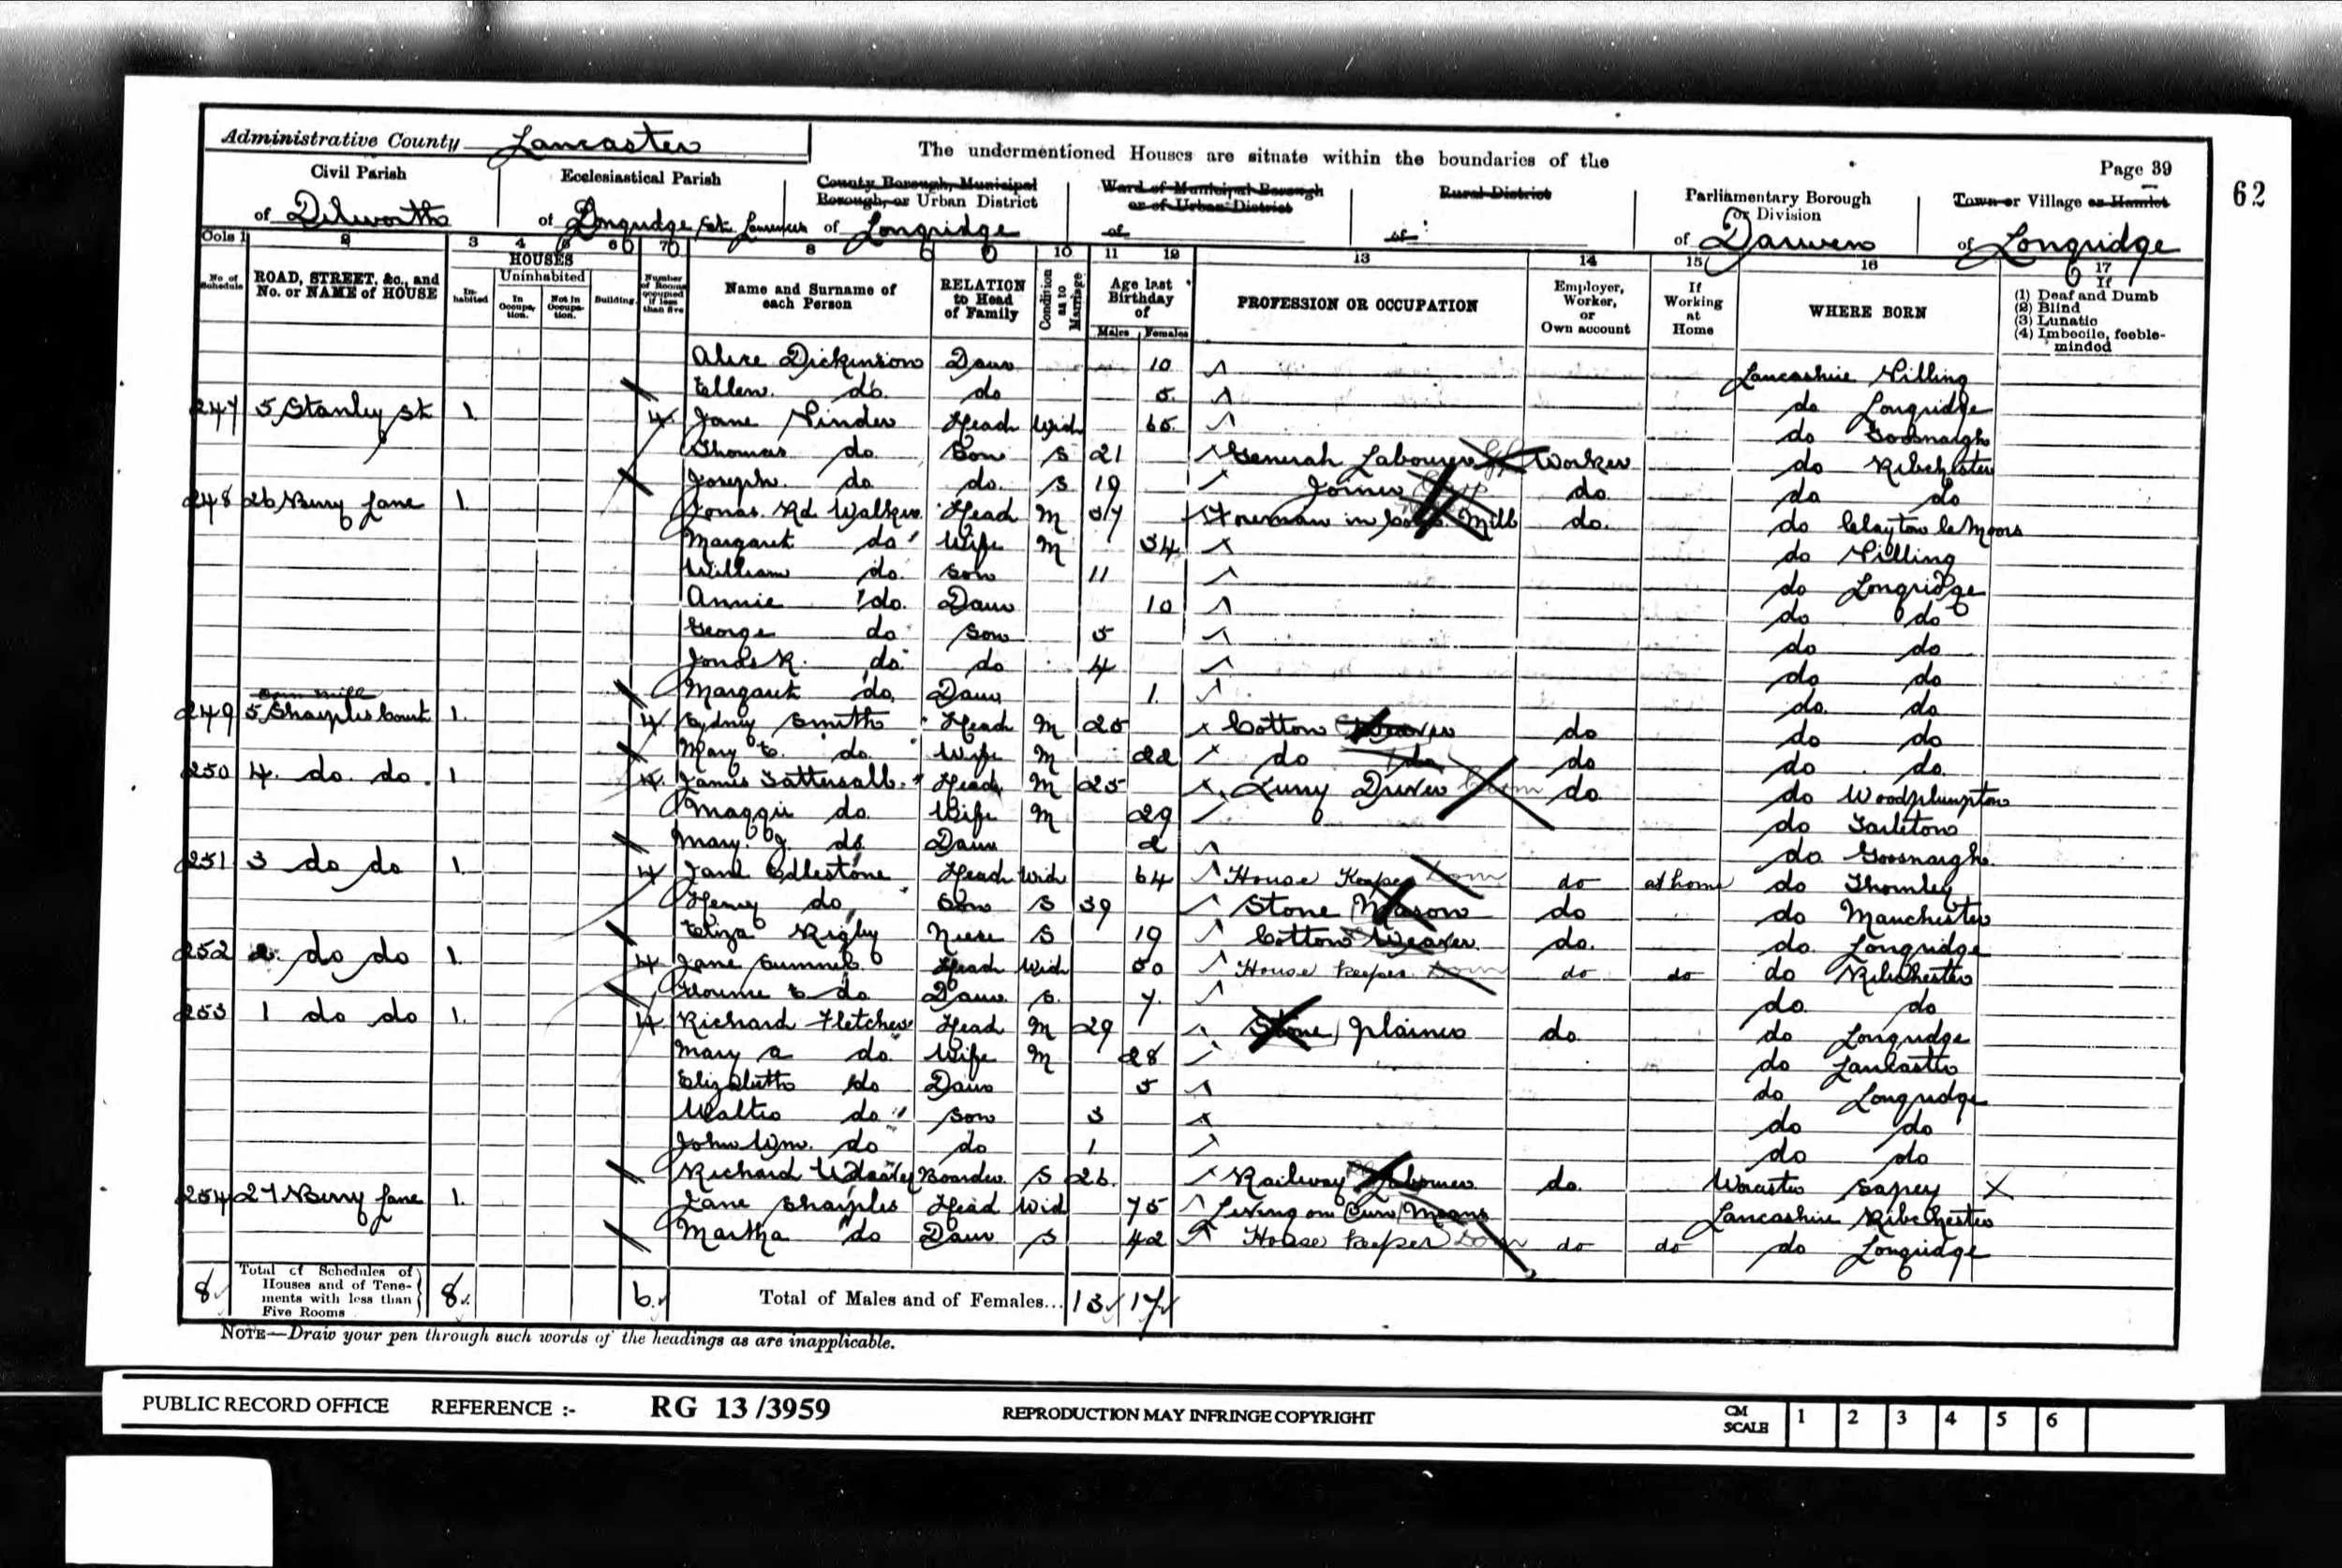 Administrative County Lancaster
The undermentioned Houses are situate within the boundaries of the
Page 39
62
Civil Parish
of Dilworth
Ecclesiastical Parish
of Longridge, St. Lawrence
County Borough, Municipal Borough, or Urban District
of Longridge
Ward of Municipal Borough or of Urban District
of
Rural District
of
Parliamentary Borough or Division
of Darwen
Town or Village or Hamlet
of Longridge
Cols 1 2 3 4 5 6 7 8 9 10 11 12 13 14 15 16 17
No. of Schedule
ROAD, STREET, &c., and No. or NAME of HOUSE
HOUSES
Inhabited
Uninhabited
In Occupation.
Not in Occupation.
Building
Number of Rooms occupied if less than five
Name and Surname of each Person
RELATION to Head of Family
Condition as to Marriage
Age last Birthday of
Males Females
PROFESSION OR OCCUPATION
Employer, Worker, or Own account
If Working at Home
WHERE BORN
If
(1) Deaf and Dumb
(2) Blind
(3) Lunatic
(4) Imbecile, feeble-minded
Alice Dickinson Daur 10 Lancashire Nilling
Ellen do. do 5 do Longridge
247 5 Stanley St 1. 4. Jane Head Wid 65 do Goosnargh
Thomas do Son S 21 General Labourer Worker do Ribchester
Joseph do do. S 19 Joiner do. do do
248 26 Berry Lane 1. Jonas Rd Walker Head M 37 Foreman in Mill do. do Clayton le Moors
Margaret do Wife M 34 do Nilling
William do. Son 11 do Longridge
Annie do. Daur 10 do do
George do Son 5 do do
Jonas R. do do 4 do do
Margaret do, Daur 1. do. do
249 5 Sharples Court 1. 4 Sydney Smith Head M 25 Cotton Weaver do do do
Mary E. do. Wife M 22 do do do do do.
250 4. do. do. 1 4. James Tattersall Head M 25 Lurry Driver do. do Woodplumpton
Maggie do. Wife M 29 do Tarleton
Mary. J. do Daur 2 do. Goosnargh.
251 3 do do 1. 4 Jane Edlestone Head Wid 64 House Keeper Dom do at home do Thornley
Henry do, Son S 39 Stone Mason do do Manchester
Eliza Rigby Niece S 19 Cotton Weaver. do. do. Longridge
252 2. do do 1. 4 Jane Sumner Head Wid 50 House keeper Dom do do do Ribchester
Florence E do Daur. S. 7. do. do
253 1 do do 1. 4 Richard Fletcher Head M 29 Stone planer do. do Longridge
Mary A do Wife M 28 do Lancaster
Elizabeth do Daur 5 do Longridge
Walter do Son 3 do do
John Wm. do do 1 do do
Richard Boarder S 26. Railway Labourer do. Worcester Sapey X
254 27 Berry Lane 1. Jane Sharples Head Wid 75 Living on Own Means Lancashire Ribchester
Martha do Daur S 42 House keeper Dom do do do Longridge
8 Total of Schedules of Houses and of Tenements with less than Five Rooms 8. 6. Total of Males and of Females... 13 17
NOTE—Draw your pen through such words of the headings as are inapplicable.
PUBLIC RECORD OFFICE REFERENCE :- RG 13/3959 REPRODUCTION MAY INFRINGE COPYRIGHT CM SCALE 1 2 3 4 5 6